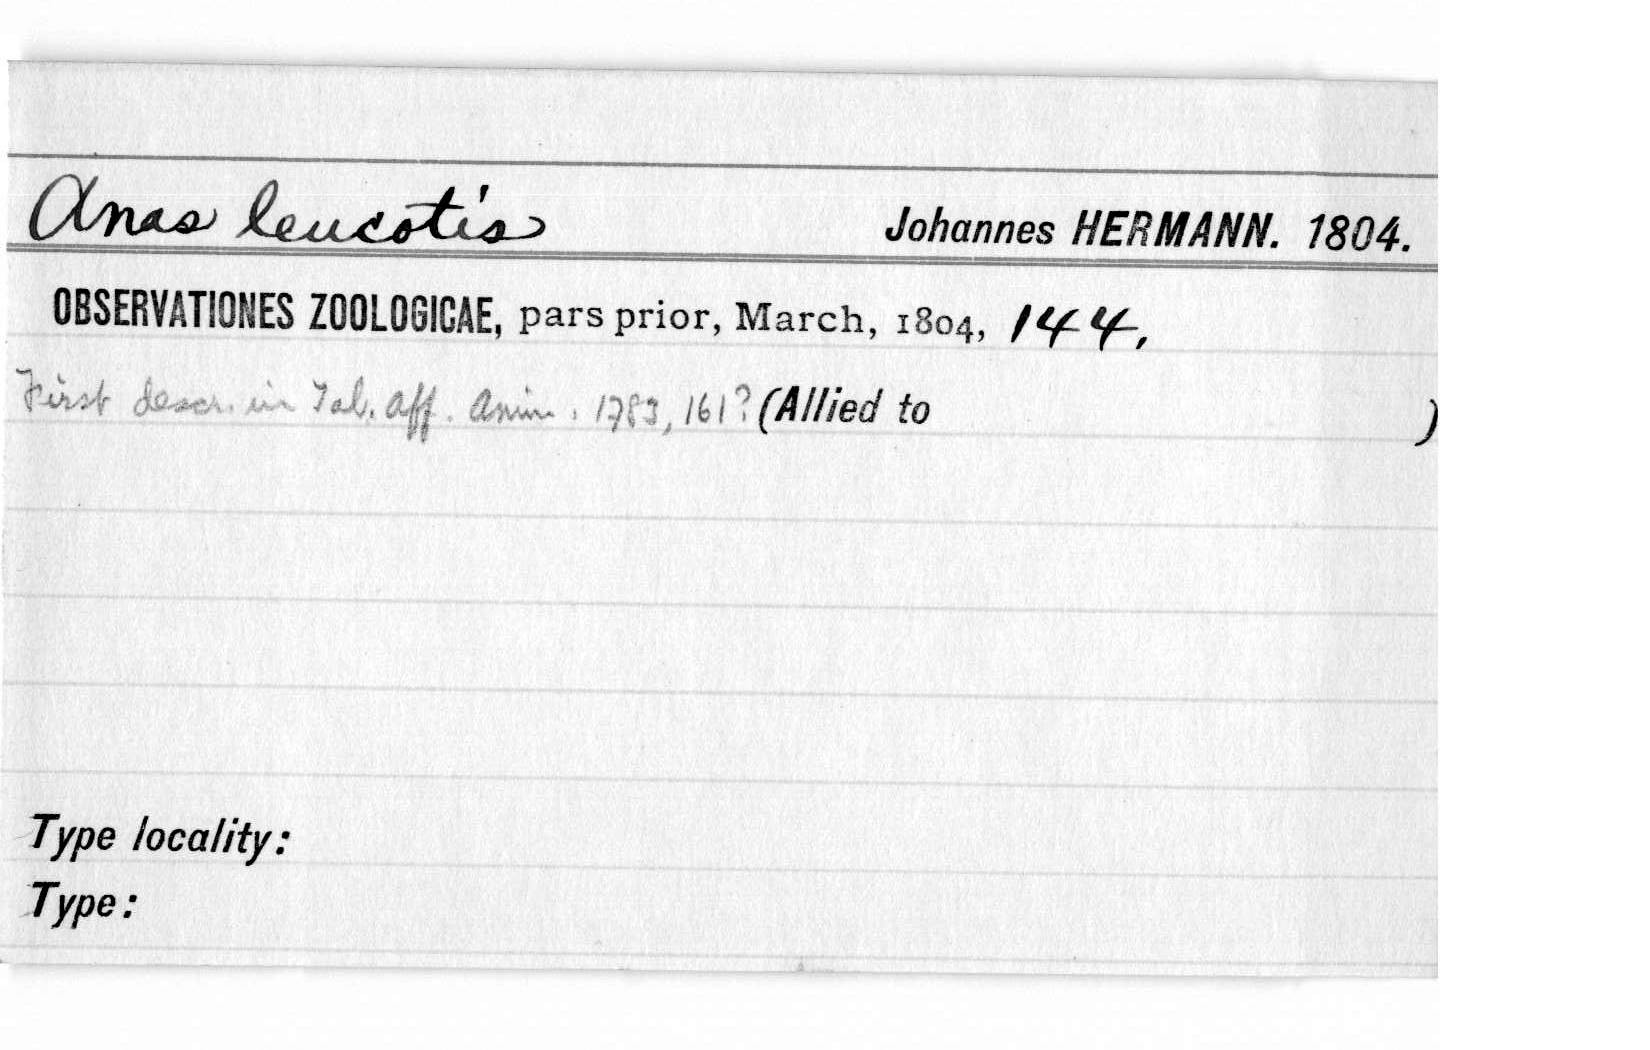 Anas leucotis Johannes HERMANN. 1804.
OBSERVATIONES ZOOLOGICAE, pars prior, March, 1804, 144,
First descr. in Tab. Aff. Anim. 1783, 161? (Allied to )
Type locality:
Type: